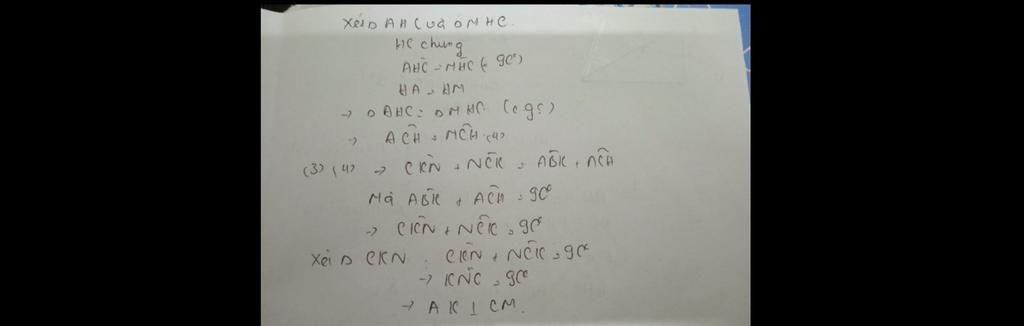 Xét Δ AHC và Δ MHC.
HC chung
AĤC = MĤC (= 90°)
HA = HM
→ Δ AHC = Δ MHC (c g c)
→ AĈH = MĈH (4)
(3) (4) → CK̂N + NĈK = AB̂K + AĈH
Mà AB̂K + AĈH = 90°
→ CK̂N + NĈK = 90°
Xét Δ CKN : CK̂N + NĈK = 90°
→ KN̂C = 90°
→ AK ⊥ CM.